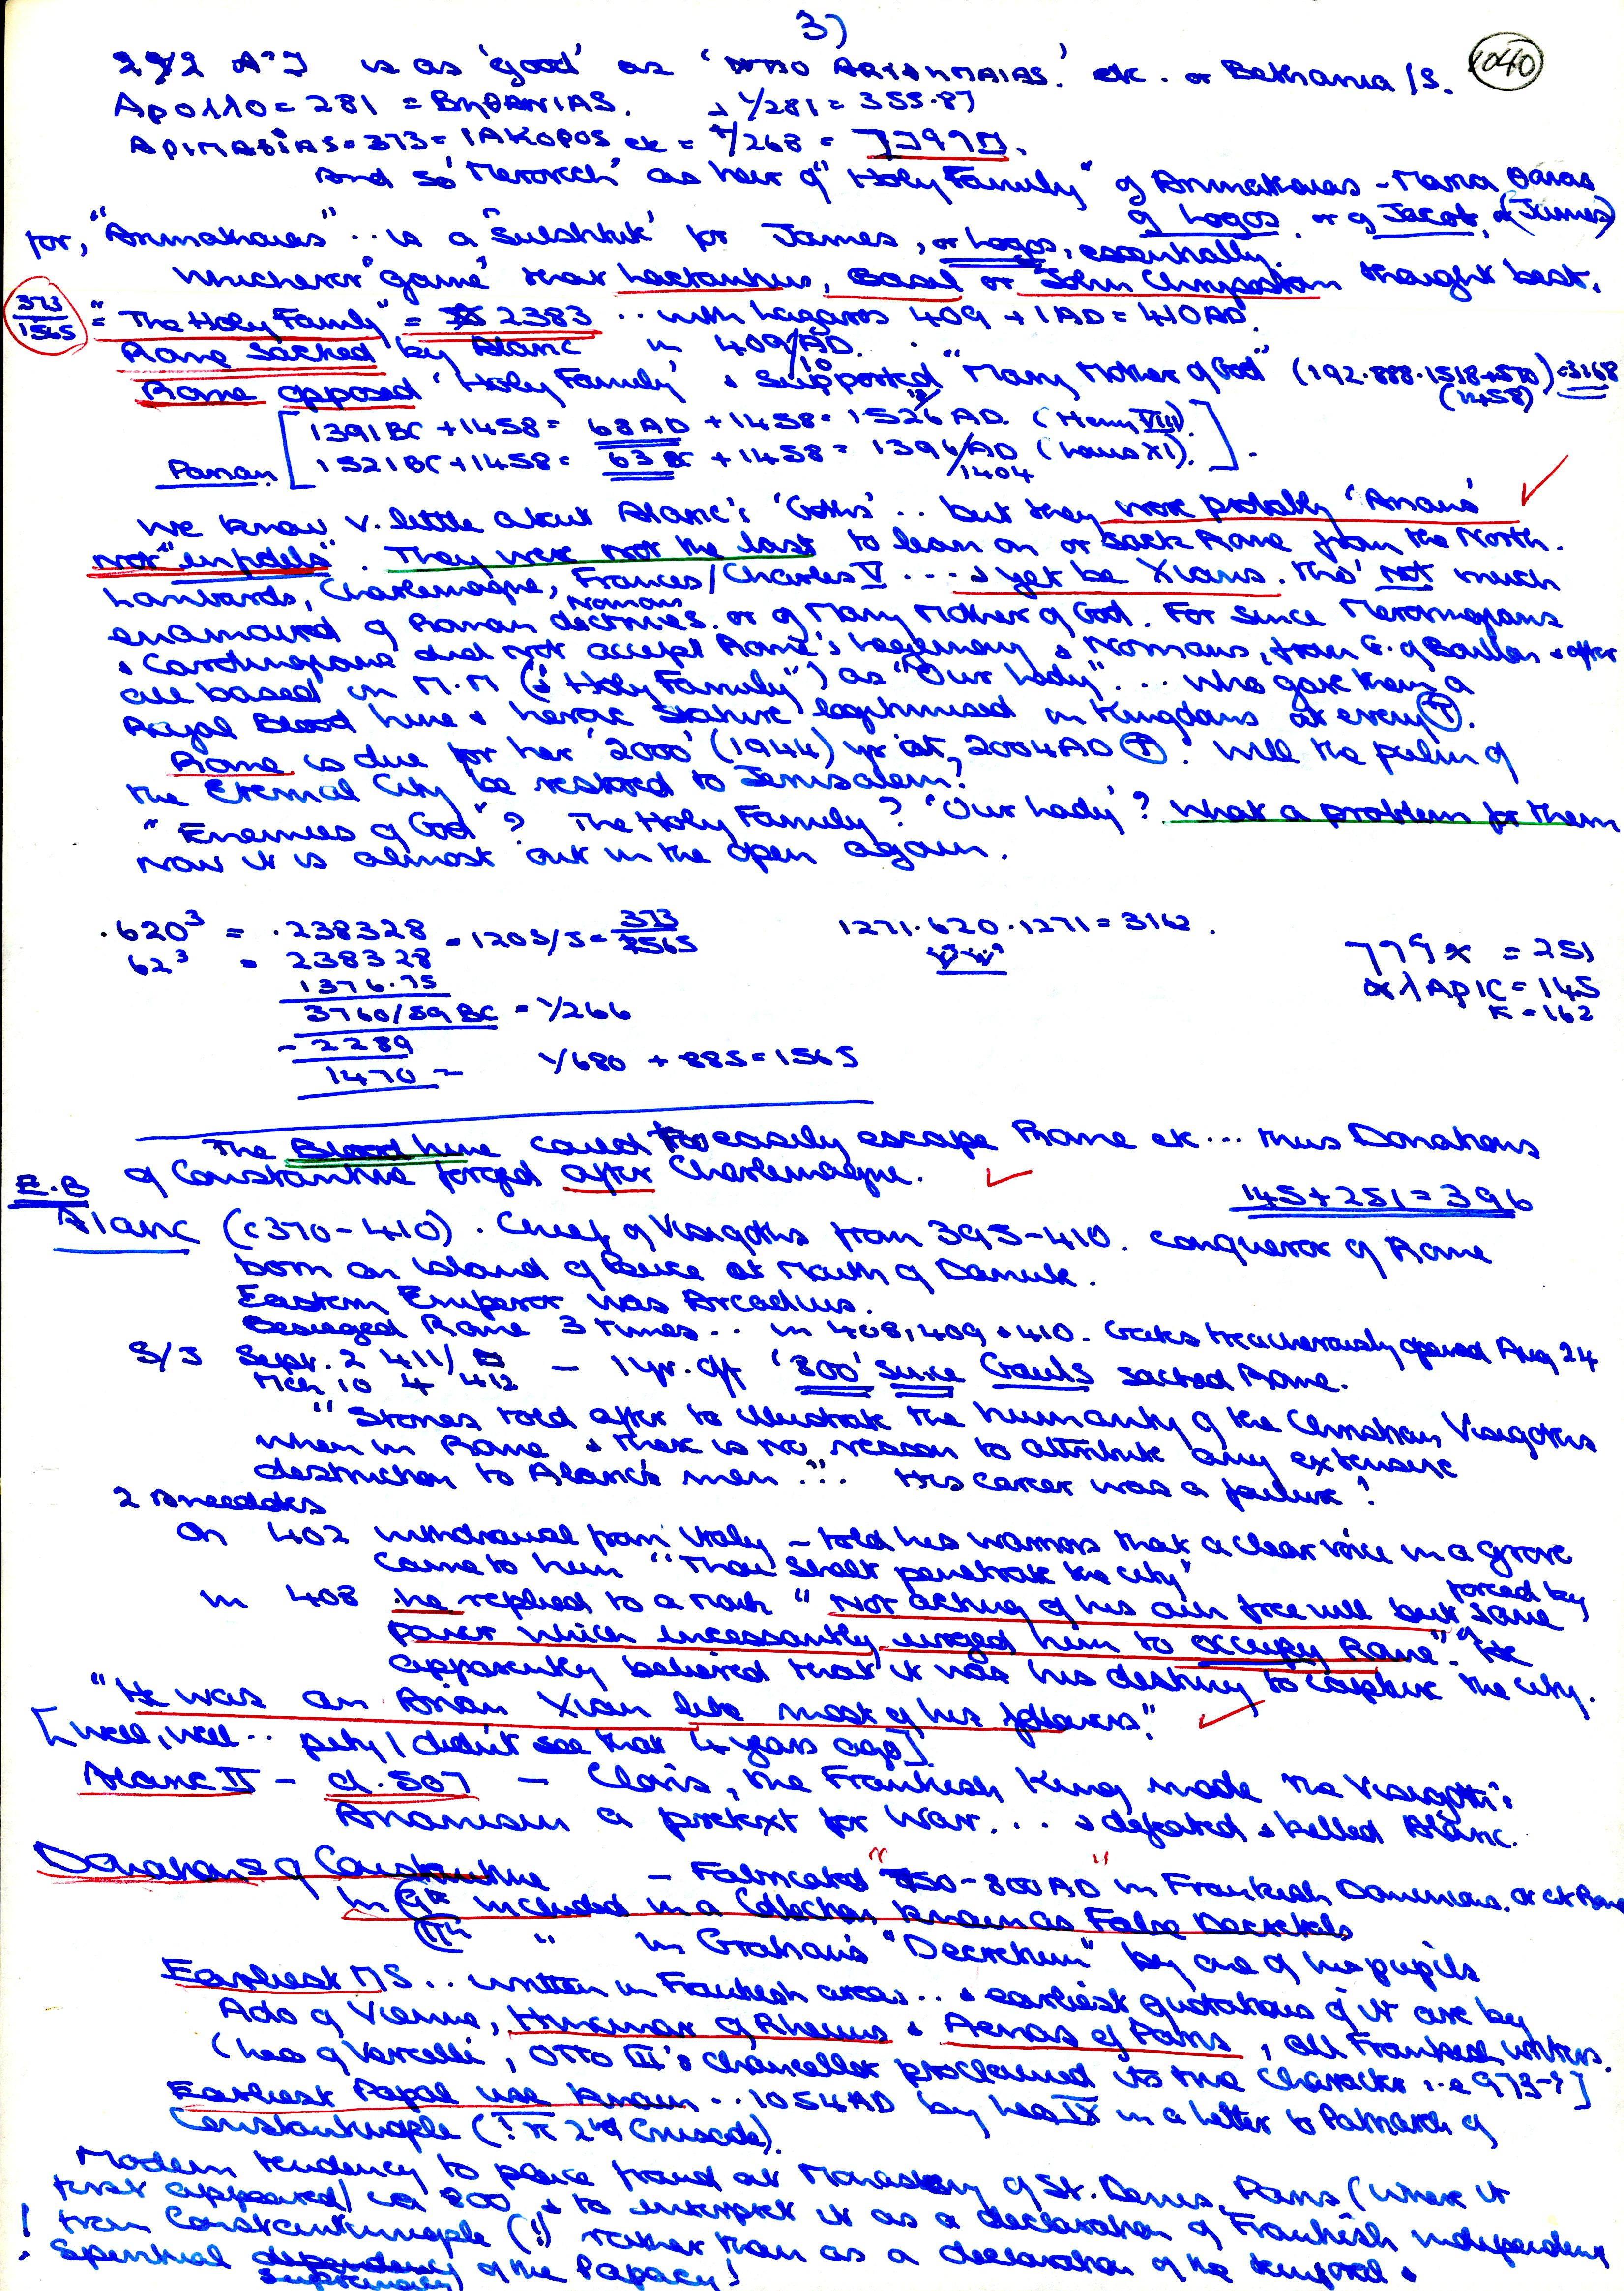 3)
1040
is as 'good' as ' etc. or Bethania /S.
Apollo = 281 = BηθANIAS. 1/281 = 355.87
ApiMAθiAS = 373 = IAKOPOS etc = 1/268 =
And so 'Merovech' as heir of "Holy Family" of Arimathaias - Maria
of Logos or of Jacob, (James)
for, "Arimathaias" .. is a 'substitute' for James, or Logos, essentially.
Whichever 'game' that Lactantius, Basil or John Chrysostom thought best.
373
1565
= "The Holy Family" = 2383 .. with Lazaros 409 + 1 AD = 410 AD.
Rome sacked by Alaric in 409/10 AD.
Rome opposed 'Holy Family' & supported "Mary Mother of God" (192.888.1518+570) = 3168
(1458)
1391 BC + 1458 = 68 AD + 1458 = 1526 AD. (Henry VIII)
1521 BC + 1458 = 63 BC + 1458 = 1396/AD (Louis XI).
1404
We know v. little about Alaric's 'Goths' .. but they were probably 'Arians'
not "infidels". They were not the last to lean on or sack Rome from the North.
Lombards, Charlemagne, Frances/Charles V .... & yet be Xians. Tho' not much
enamoured of Roman doctrines. or of Mary Mother of God. For since Merovingians
Normans
& Carolingians did not accept Rome's hegemony & Normans, from G. of Bouillon & after
all based in M.M (& 'Holy Family') as "Our Lady" ... who gave them a
Royal Blood line & heroic stature legitimised in Kingdoms at every (T).
Rome is due for her '2000' (1944) yr at 2004 AD (T). Will the palm of
the Eternal City be restored to Jerusalem?
"Enemies of God"? The Holy Family? 'Our Lady'? What a problem for them
Now it is almost out in the open again.
.620³ = .238328 = 1203/5 = 373
1565
1271.620.1271 = 3162.
62³ = 238328
1376.75
3760/59 BC = 1/266
- 2289
1470 -
1/680 + 885 = 1565
= 251
APIC = 145
K = 162
The Blood line could too easily escape Rome etc ... thus Donations
of Constantine forged after Charlemagne.
145 + 251 = 396
E.B
Alaric (c370-410). Chief of Visigoths from 395-410. conqueror of Rome
born on island of Peuce at Mouth of Danube.
Eastern Emperor was Arcadius.
Besieged Rome 3 times .. in 408, 409 & 410. Gates treacherously opened Aug 24
S/J Sept. 2 411/
Mch 10 4 412
- 1 yr. off '800' since Gauls sacked Rome.
"Stories told after to illustrate the humanity of the Christian Visigoths
when in Rome & there is no reason to attribute any extensive
destruction to Alaric's men" .. His career was a failure!
2 anecdotes
On 402 withdrawal from Italy - told his warriors that a clear voice in a grove
came to him "Thou shalt penetrate the city"
In 408 he replied to a monk "Not acting of his own free will but forced by some
power which incessantly urged him to occupy Rome". "He
apparently believed that it was his destiny to capture the city.
"He was an Arian Xian like most of his followers."
[Well, well .. pity I didn't see that 4 years ago]
Alaric II - d. 507 - Clovis, the Frankish King made the Visigoth's
Arianism a pretext for War ... & defeated & killed Alaric.
Donations of Constantine - Fabricated "750-800 AD" in Frankish Dominions. or at Rome
In 9th included in a Collection known as False Decretals
11th " in Gratian's "Decretum" by one of his pupils
Earliest MS .. written in Frankish area .. & earliest quotations of it are by
Ado of Vienne, Hincmar of Rheims & Aeneas of Paris, all Frankish writers.
(Leo of Vercelli, Otto III's chancellor proclaimed its true character i.e 973-?]
Earliest Papal use known .. 1054 AD by Leo IX in a letter to Patriarch of
Constantinople (! π 2nd Crusade).
Modern tendency to place fraud at Monastery of St. Denis, Paris (where it
first appeared) ca 800 & to interpret it as a declaration of Frankish independence
! from Constantinople (!) rather than as a declaration of the temporal &
Spiritual supremacy of the Papacy!